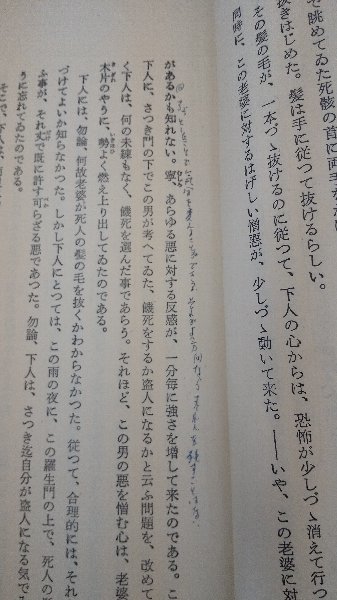 て眺めてゐた死骸の首に両手
抜きはじめた。髪は手に従つて抜けるらしい。
その髪の毛が、一本づゝ抜けるのに従つて、下人の心からは、恐怖が少しづゝ消えて行つ
同時に、この老婆に対するはげしい憎悪が、少しづゝ動いて来た。――いや、この老婆に対
があるかも知れない。寧、あらゆる悪に対する反感が、一分毎に強さを増して来たのである。こ
下人に、さつき門の下でこの男が考へてゐた、饑死をするか盗人になるかと云ふ問題を、改めて
く下人は、何の未練もなく、饑死を選んだ事であらう。それほど、この男の悪を憎む心は、老婆
木片のやうに、勢よく燃え上り出してゐたのである。
下人には、勿論、何故老婆が死人の髪の毛を抜くかわからなかつた。従つて、合理的には、それ
づけてよいか知らなかつた。しかし下人にとつては、この雨の夜に、この羅生門の上で、死人の
ふ事が、それ丈で既に許す可らざる悪であつた。勿論、下人は、さつき迄自分が盗人になる気で
うに忘れてゐたのである。
そこで、下人は、